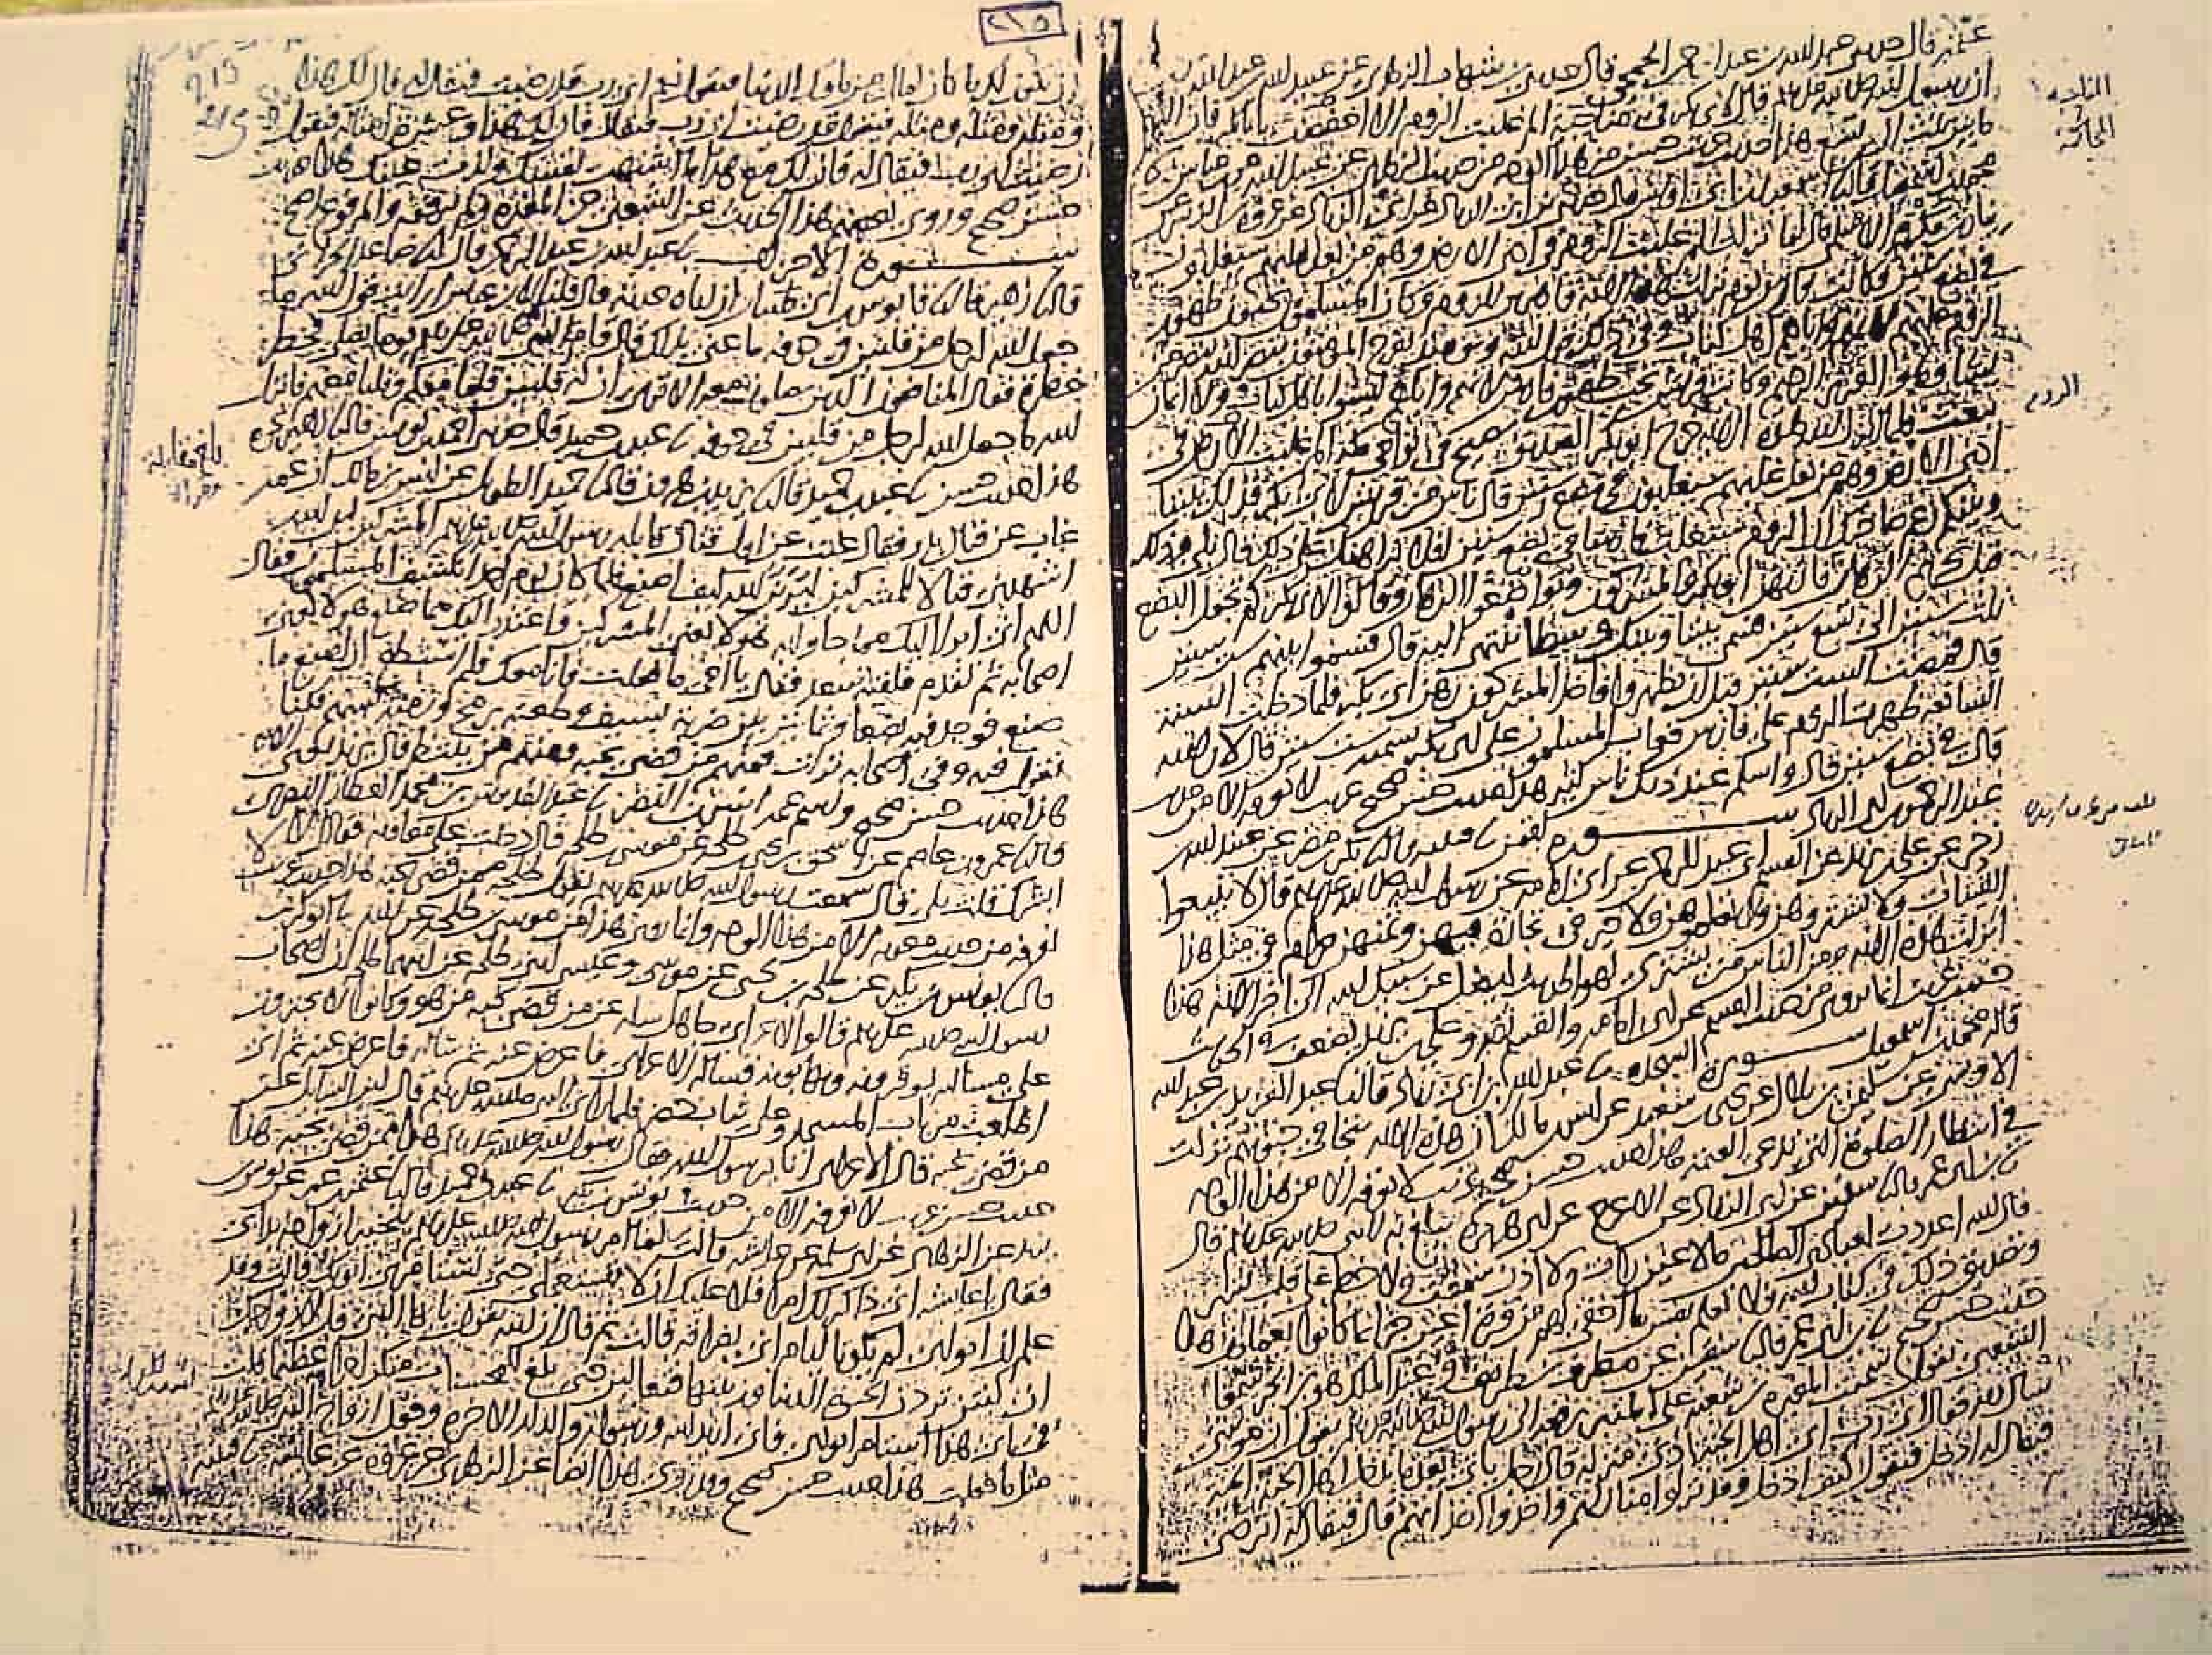 عثمة قال حدثني عبد الله بن عبد الرحمن الجمحي قال حدثني بن شهاب الزهري عن عبيد الله بن عبد الله
ان رسول الله صلى الله عليه وسلم قال لابي بكر في مناحبة الم غلبت الروم الا احتطت يا ابا بكر فان البضع
ما بين ثلث الى تسع هذا حديث حسن من هذا الوجه من حديث الزهري عن عبيد الله عن بن عباس
محمد بن اسمعيل قال اسمعيل بن ابي اويس قال حدثني بن ابي الزناد عن ابي الزناد عن عروة بن الزبير عن
نيار بن مكرم الاسلمي قال لما نزلت الم غلبت الروم في ادنى الارض وهم من بعد غلبهم سيغلبون
في بضع سنين فكانت فارس يوم نزلت هذه الاية قاهرين للروم وكان المسلمون يحبون ظهور
الروم عليهم لانهم واياهم اهل كتاب وفي ذلك قول الله ويومئذ يفرح المؤمنون بنصر الله ينصر من
يشا وهو العزيز الرحيم وكانت قريش تحب ظهور فارس لانهم واياهم ليسوا باهل كتاب ولا ايمان
ببعث فلما انزل الله هذه الاية خرج ابو بكر الصديق يصيح في نواحي مكة الم غلبت الروم في
ادنى الارض وهم من بعد غلبهم سيغلبون في بضع سنين قال ناس من قريش لابي بكر فذلك بيننا
وبينكم زعم صاحبكم ان الروم ستغلب فارسا في بضع سنين افلا نراهنك على ذلك قال بلى وذلك
قبل تحريم الرهان فارتهن ابو بكر والمشركون وتواضعوا الرهان وقالوا لابي بكر كم تجعل البضع
ثلث سنين الى تسع سنين فسم بيننا وبينك وسطا تنتهي اليه قال فسموا بينهم ست سنين
قال فمضت الست سنين قبل ان يظهروا فاخذ المشركون رهن ابي بكر فلما دخلت السنة
السابعة ظهرت الروم على فارس فعاب المسلمون على ابي بكر تسمية ست سنين قال لان الله
قال في بضع سنين قال واسلم عند ذلك ناس كثير هذا حديث حسن صحيح غريب لا نعرفه الا من حديث
عبد الرحمن بن ابي الزناد ســـورة لقمن قتيبة قال بكر بن مضر عن عبيد الله
بن زحر عن علي بن يزيد عن القسم بن عبد الرحمن عن ابي امامة عن رسول الله صلى الله عليه وسلم قال لا تبيعوا
القينات ولا تشتروهن ولا تعلموهن ولا خير في تجارة فيهن وثمنهن حرام في مثل هذا
انزلت هذه الاية ومن الناس من يشتري لهو الحديث ليضل عن سبيل الله الى اخر الاية هذا
حديث غريب انما يروى من حديث القسم عن ابي امامة والقسم ثقة وعلي بن يزيد يضعف في الحديث
قاله محمد بن اسمعيل ســـورة السجدة عبد الله بن ابي زياد قال عبد العزيز بن عبد الله
الاويسي عن سليمن بن بلال عن يحيى بن سعيد عن انس بن مالك ان هذه الاية تتجافى جنوبهم نزلت
في انتظار الصلوة التي تدعى العتمة هذا حديث حسن صحيح غريب لا نعرفه الا من هذا الوجه
بن ابي عمر قال سفين عن ابي الزناد عن الاعرج عن ابي هريرة يبلغ به النبي صلى الله عليه وسلم قال
قال الله اعددت لعبادي الصالحين ما لا عين رات ولا اذن سمعت ولا خطر على قلب بشر
وتصديق ذلك في كتاب الله فلا تعلم نفس ما اخفي لهم من قرة اعين جزا بما كانوا يعملون هذا
حديث حسن صحيح بن ابي عمر قال سفين عن مطرف بن طريف وعبد الملك وهو بن ابجر سمعا
الشعبي يقول سمعت المغيرة بن شعبة على المنبر يرفعه الى رسول الله صلى الله عليه وسلم يقول ان موسى
سال الله فقال اي رب اي اهل الجنة ادنى منزلة قال رجل ياتي بعد ما يدخل اهل الجنة الجنة
فيقال له ادخل فيقول كيف ادخل وقد نزلوا منازلهم واخذوا اخذاتهم قال فيقال له اترضى
الروم
٢١٥
215
ان يكون لك ما كان لملك من ملوك الدنيا فيقول نعم اي رب قد رضيت فيقال له فان لك هذا
ومثله ومثله ومثله فيقول قد رضيت اي رب فيقال فان لك هذا وعشرة امثاله فيقول
رضيت اي رب فيقال له فان لك مع هذا ما اشتهت نفسك ولذت عينك هذا حديث
حسن صحيح وروى بعضهم هذا الحديث عن الشعبي عن المغيرة ولم يرفعه والمرفوع اصح
ســـورة الاحزاب عبد الله بن عبد الرحمن قال صاعد الحراني
قال زهير قال قابوس بن ابي ظبيان ان اباه حدثه قال قلنا لابن عباس ارايت قول الله ما
جعل الله لرجل من قلبين في جوفه ما عنى بذلك قال قام النبي صلى الله عليه وسلم يوما يصلي فخطر
خطرة فقال المنافقون الذين يصلون معه الا ترى ان له قلبين قلبا معكم وقلبا معهم فانزل
الله ما جعل الله لرجل من قلبين في جوفه عبد بن حميد قال حدثني احمد بن يونس قال زهير نحوه
هذا حديث حسن عبد بن حميد قال يزيد بن هرون قال حميد الطويل عن انس بن مالك ان عمه
غاب عن قتال بدر فقال غبت عن اول قتال قاتله رسول الله صلى الله عليه وسلم المشركين لئن الله
اشهدني قتالا للمشركين ليرين الله كيف اصنع فلما كان يوم احد انكشف المسلمون فقال
اللهم اني ابرا اليك مما جاوا به هولا يعني المشركين واعتذر اليك مما صنع هولا يعني
اصحابه ثم تقدم فلقيه سعد فقال يا اخي ما فعلت فانا معك فلم استطع ان اصنع ما
صنع فوجد فيه بضعا وثمانين بين ضربة بسيف وطعنة برمح ورمية بسهم فكنا
نقول فيه وفي اصحابه نزلت فمنهم من قضى نحبه ومنهم من ينتظر قال يزيد يعني الاية
هذا حديث حسن صحيح واسم عمه انس بن النضر عبد القدوس بن محمد العطار البصري
قال عمرو بن عاصم عن اسحق بن يحيى بن طلحة عن موسى بن طلحة قال دخلت على معاوية فقال الا
ابشرك قلت بلى قال سمعت رسول الله صلى الله عليه وسلم يقول طلحة ممن قضى نحبه هذا حديث غريب لا
نعرفه من حديث معوية الا من هذا الوجه وانما روي هذا عن موسى بن طلحة عن ابيه ابو كريب
قال يونس بن بكير عن طلحة بن يحيى عن موسى وعيسى ابني طلحة عن ابيهما طلحة ان اصحاب
رسول الله صلى الله عليه وسلم قالوا لاعرابي جاهل سله عن من قضى نحبه من هو وكانوا لا يجترون
على مسالته يوقرونه ويهابونه فساله الاعرابي فاعرض عنه ثم ساله فاعرض عنه ثم اني
اطلعت من باب المسجد وعلي ثياب خضر فلما راني النبي صلى الله عليه وسلم قال اين السايل عن
من قضى نحبه قال الاعرابي انا يا رسول الله فقال رسول الله صلى الله عليه وسلم هذا ممن قضى نحبه هذا
حديث حسن غريب لا نعرفه الا من حديث يونس بن بكير عبد بن حميد قال عثمن بن عمر عن يونس بن
يزيد عن الزهري عن ابي سلمة عن عايشة قالت لما امر رسول الله صلى الله عليه وسلم بتخيير ازواجه بدا بي
فقال يا عايشة اني ذاكر لك امرا فلا عليك ان لا تستعجلي حتى تستامري ابويك قالت وقد
علم ان ابوي لم يكونا ليامراني بفراقه قالت ثم قال ان الله يقول يا ايها النبي قل لازواجك
ان كنتن تردن الحيوة الدنيا وزينتها فتعالين حتى بلغ للمحسنات منكن اجرا عظيما فقلت
في اي هذا استامر ابوي فاني اريد الله ورسوله والدار الاخرة وفعل ازواج النبي صلى الله عليه وسلم
مثل ما فعلت هذا حديث حسن صحيح وقد روي هذا ايضا عن الزهري عن عروة عن عايشة
بلغ مقابلة